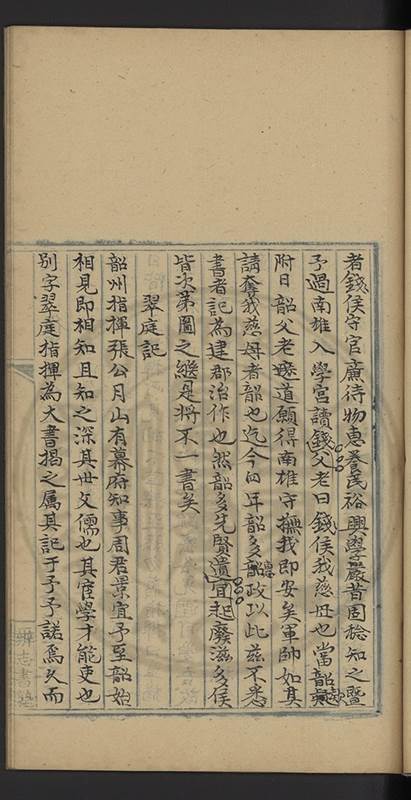 者錢侯守官廉待物惠養民裕興學嚴昔固稔知之暨
予過南雄入學宮讀錢父老曰錢侯我慈母也當韶
附日韶父老遮道願得南雄守撫我即安矣軍帥如其
請奪我慈母者韶也迄今四年韶多韶政以此茲不悉
書書者記為建郡治作也然韶多先賢遺宜起廢滋多侯
皆次第圖之繼是將不一書矣
翠庭記
韶州指揮張公月山有幕府知事周君景宜予至韶始
相見即相知且知之深其世父儒也其宦學才能吏也
別字翠庭指揮為大書揭之屬其記于予予諾焉久而
辨志書塾